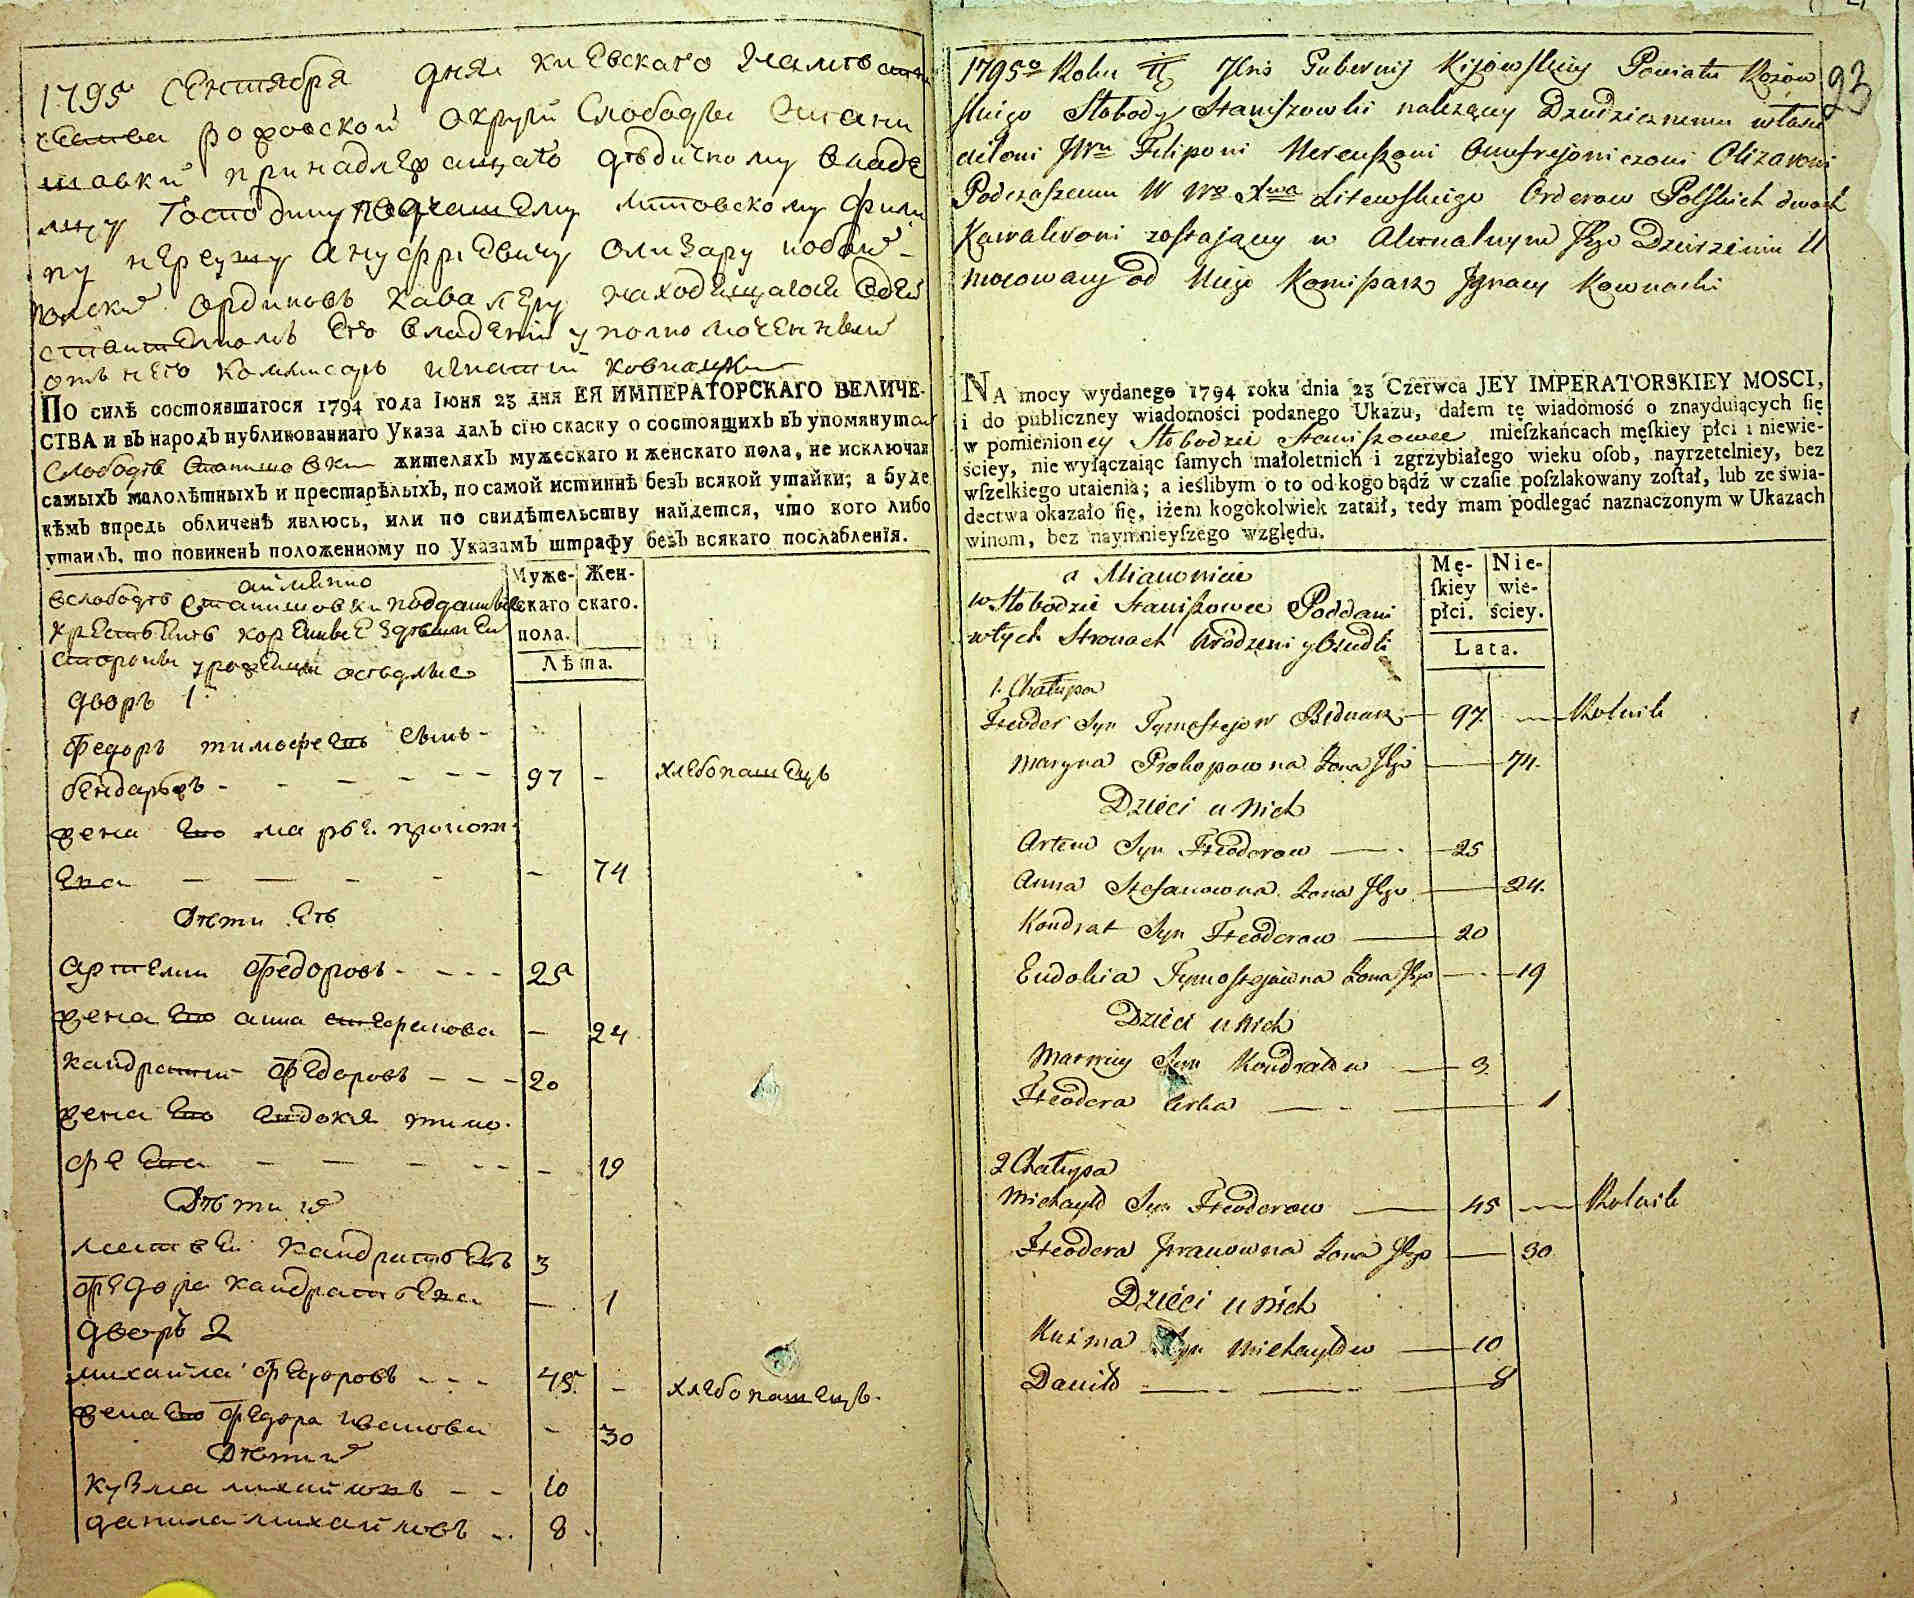 1795 Сентября дня киевскаго намѣст
роховской округи Слободы Стани
шовки принадлежащаго дѣдичному владѣ
лцу Господину Подчашему литовскому Фили
пу Нереушу Ануфриевичу Олизару
ординовъ кавалеру находящагося въ дей
ствителномъ его владении уполномоченный
отъ него коммисаръ игнатий ковнацки
По силѣ состоявшагося 1794 года Іюня 23 дня ЕЯ ИМПЕРАТОРСКАГО ВЕЛИЧЕ-
СТВА и въ народъ публикованнаго Указа далъ сію скаску о состоящихъ въ упомянутой
Слободѣ Станишовки жителяхъ мужескаго и женскаго пола, не исключая
самыхъ малолѣтныхъ и престарѣлыхъ, по самой истиннѣ безъ всякой утайки; а буде
кѣмъ впредь обличенъ явлюсь, или по свидѣтельству найдется, что кого либо
утаилъ, то повиненъ положенному по Указамъ штрафу безъ всякаго послабленія.
аимѣнно
вслободѣ Станишовки подданые
сторони урожении оседлые
Муже-скаго пола.
Жен-скаго.
Лѣта.
дворъ 1
Федоръ тимофеевъ сынъ -
бендарь - - - - - - 97 - хлебопашецъ
жена его марья прокоп
ева — — - - - 74
Дѣти ихъ
артемии Федоровъ - - - - 25
жена его анна стефанова - 24
кандратий Федоровъ - - - 20
жена его евдокия тимо-
феева - — - - - - 19
Дѣти их
матвей кандратьевъ 3
Федора кандратьева — 1
дворъ 2
михайла Федоровъ - - - 45 - хлебопашецъ.
жена его Федора иванова - 30
Дѣти их
кузма михайловъ - - 10
данила михайловъ - . 8
93
1795o Roku Dnia Gubernij Kijowskiey Powiatu Rożow
skiego Słobody Staniszowki należącey Dziedzicznemu właści
cielowi JWu Filiponi Nereuszowi Onufrejowiczowi Olizarowi
Podczaszemu W Wo Xwa Litewskiego Orderow Polskich dwoch
Kawalerowi zostającey w Aktualnym Jego Dzierżeniu U
mocowany od Niego Komisarz Jgnacy Kownacki
NA mocy wydanego 1794 roku dnia 23 Czerwca JEY IMPERATORSKIEY MOSCI,
i do publiczney wiadomości podanego Ukazu, dałem tę wiadomość o znayduiących ſię
w pomienioney Słobodzie Staniszowce mieſzkańcach męſkiey płci i niewie-
ściey, nie wyłączaiąc ſamych małoletnich i zgrzybiałego wieku oſob, nayrzetelniey, bez
wſzelkiego utaienia; a ieślibym o to od kogo bądź w czaſie poſzlakowany zoſtał, lub ze świa-
dectwa okazało ſię, iżem kogokolwiek zataił, tedy mam podlegać naznaczonym w Ukazach
winom, bez naymnieyſzego względu.
a Mianowicie
w Słobodzie Staniszowce Poddani
w tych Stronach Urodzeni y Osiedli
Mę-ſkiey płci.
Nie-wie-ściey.
Lata.
1. Chałupa
Fteodor Syn Tymofiejow Bednarz — 97 — Rolnik
Maryna Prokopowna Żona Jego — 74.
Dzieci u Nich
Artem Syn Fteodorow — . — 25
Anna Stefanowna Żona Jego — 24.
Kondrat Syn Fteodorow — 20
Eudokia Tymofiejowna Żona Jego — . — 19
Dzieci u Nich
Matwiey Syn Kondratow — 3
Fteodora Corka — . — 1
2 Chałupa
Michayło Syn Fteodorow — 45 — Rolnik
Fteodora Jwanowna Żona Jego — 30
Dzieci u Nich
Kuźma Syn Michayłow — 10
Daniło — . — . — 8